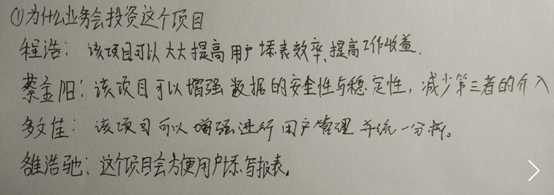 ①为什么业务会投资这个项目
程浩: 该项目可以大大提高用户填表效率,提高工作收益.
蔡孟阳: 该项目可以增强数据的安全性与稳定性, 减少第三者的介入
文佳: 该项目可以增强进行用户管理并统一分析。
雒浩驰: 这个项目会方便用户填写报表。